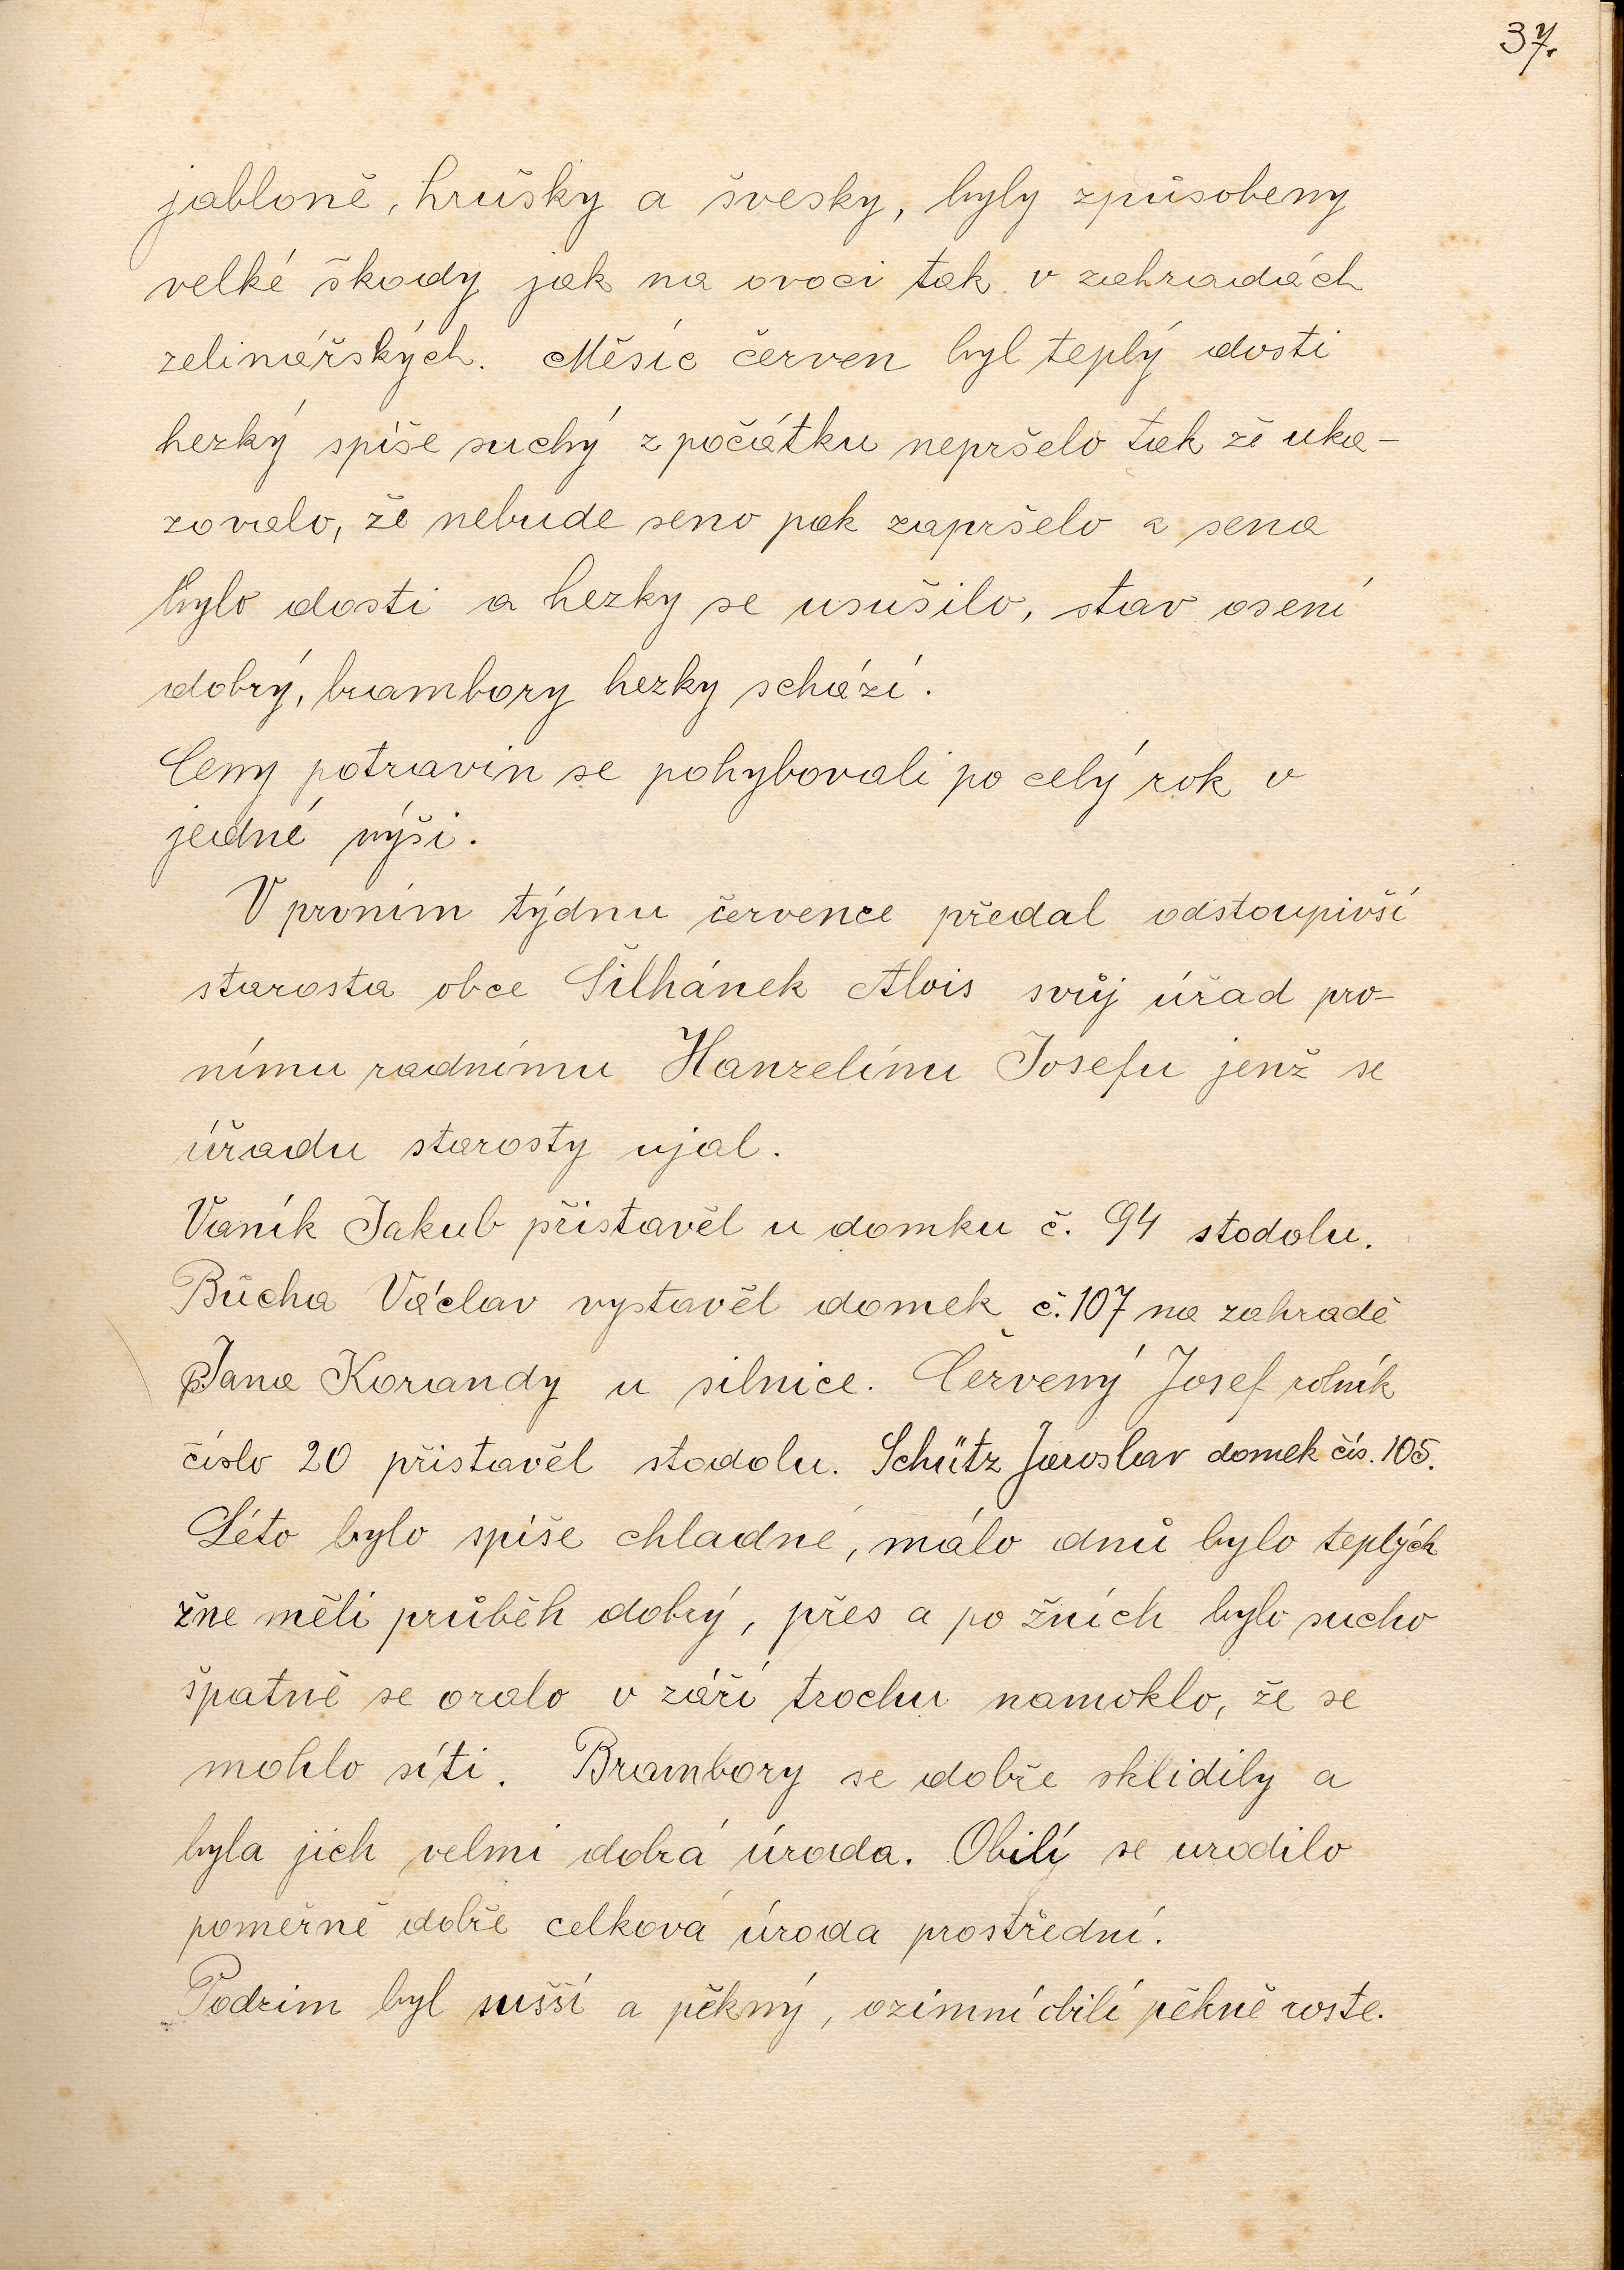 37.
jabloně, hrušky a švesky, byly způsobeny
velké škody jak na ovoci tak v zahradách
zelinářských. Měsíc červen byl teplý dosti
hezký spíše suchý z počátku nepršelo tak že uka-
zovalo, že nebude seno pak zapršelo a sena
bylo dosti a hezky se usušilo, stav osení
dobrý, brambory hezky schází.
Ceny potravin se pohybovali po celý rok v
jedné výši.
V prvním týdnu července předal odstoupivší
starosta obce Šilhánek Alois svůj úřad prv-
nímu radnímu Hanzelínu Josefu jenž se
úřadu starosty ujal.
Vaník Jakub přistavěl u domku č. 94 stodolu.
Bůcha Václav vystavěl domek č. 107 na zahradě
Jana Korandy u silnice. Červený Josef rolník
číslo 20 přistavěl stodolu. Schütz Jaroslav domek čís. 105.
Léto bylo spíše chladné, málo dnů bylo teplých
žne měli průběh dobrý, přes a po žních bylo sucho
špatně se oralo v září trochu namoklo, že se
mohlo síti. Brambory se dobře sklidily a
byla jich velmi dobrá úroda. Obilí se urodilo
poměrně dobře celková úroda prostřední.
Podzim byl sušší a pěkný, ozimní obilí pěkně roste.